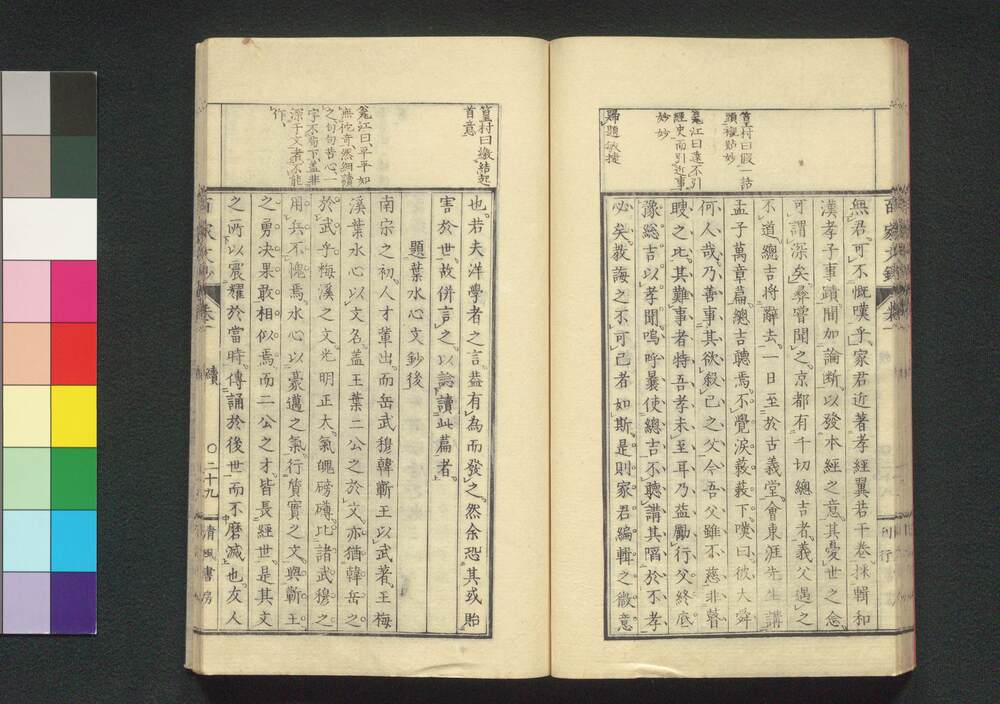 篁村曰設一詰
頭襯貼妙
龜江曰遠不引
經史而引近事
妙妙
歸題敏捷
無君可不慨嘆乎家君近著孝經翼若干卷採輯和
漢孝子事蹟間加論斷以發本經之意其憂世之念
可謂深矣彝嘗聞之京都有千切總吉者義父遇之
不道總吉將辭去一日至於古義堂會東涯先生講
孟子萬章篇總吉聽焉不覺淚蔌蔌下嘆曰彼大舜
何人哉乃善事其欲殺己之父今吾父雖不慈非瞽
瞍之比其難事者特吾孝未至耳乃益勵行父終底
豫總吉以孝聞嗚呼曩使總吉不聽講其陷於不孝
必矣教誨之不可已者如斯是則家君編輯之微意
篁村曰繳結起
首意
龜江曰平平如
無他奇然細讀
之句句苦心一
字不苟下蓋非
深于文者不能
作
也若夫洋學者之言葢有為而發之然余恐其或貽
害於世故併言之以諗讀此篇者
題葉水心文鈔後
南宗之初人才輩出而岳武穆韓蘄王以武著王梅
溪葉水心以文名蓋王葉二公之於文亦猶韓岳之
於武乎梅溪之文光明正大氣魄磅礴比諸武穆之
用兵不愧焉水心以豪邁之氣行質實之文與蘄王
之勇決果敢相似焉而二公之才皆長經世是其文
之所以震耀於當時傳誦於後世而不磨滅也友人
百家文鈔
卷一
續
〇二十九
清風書房
刊行